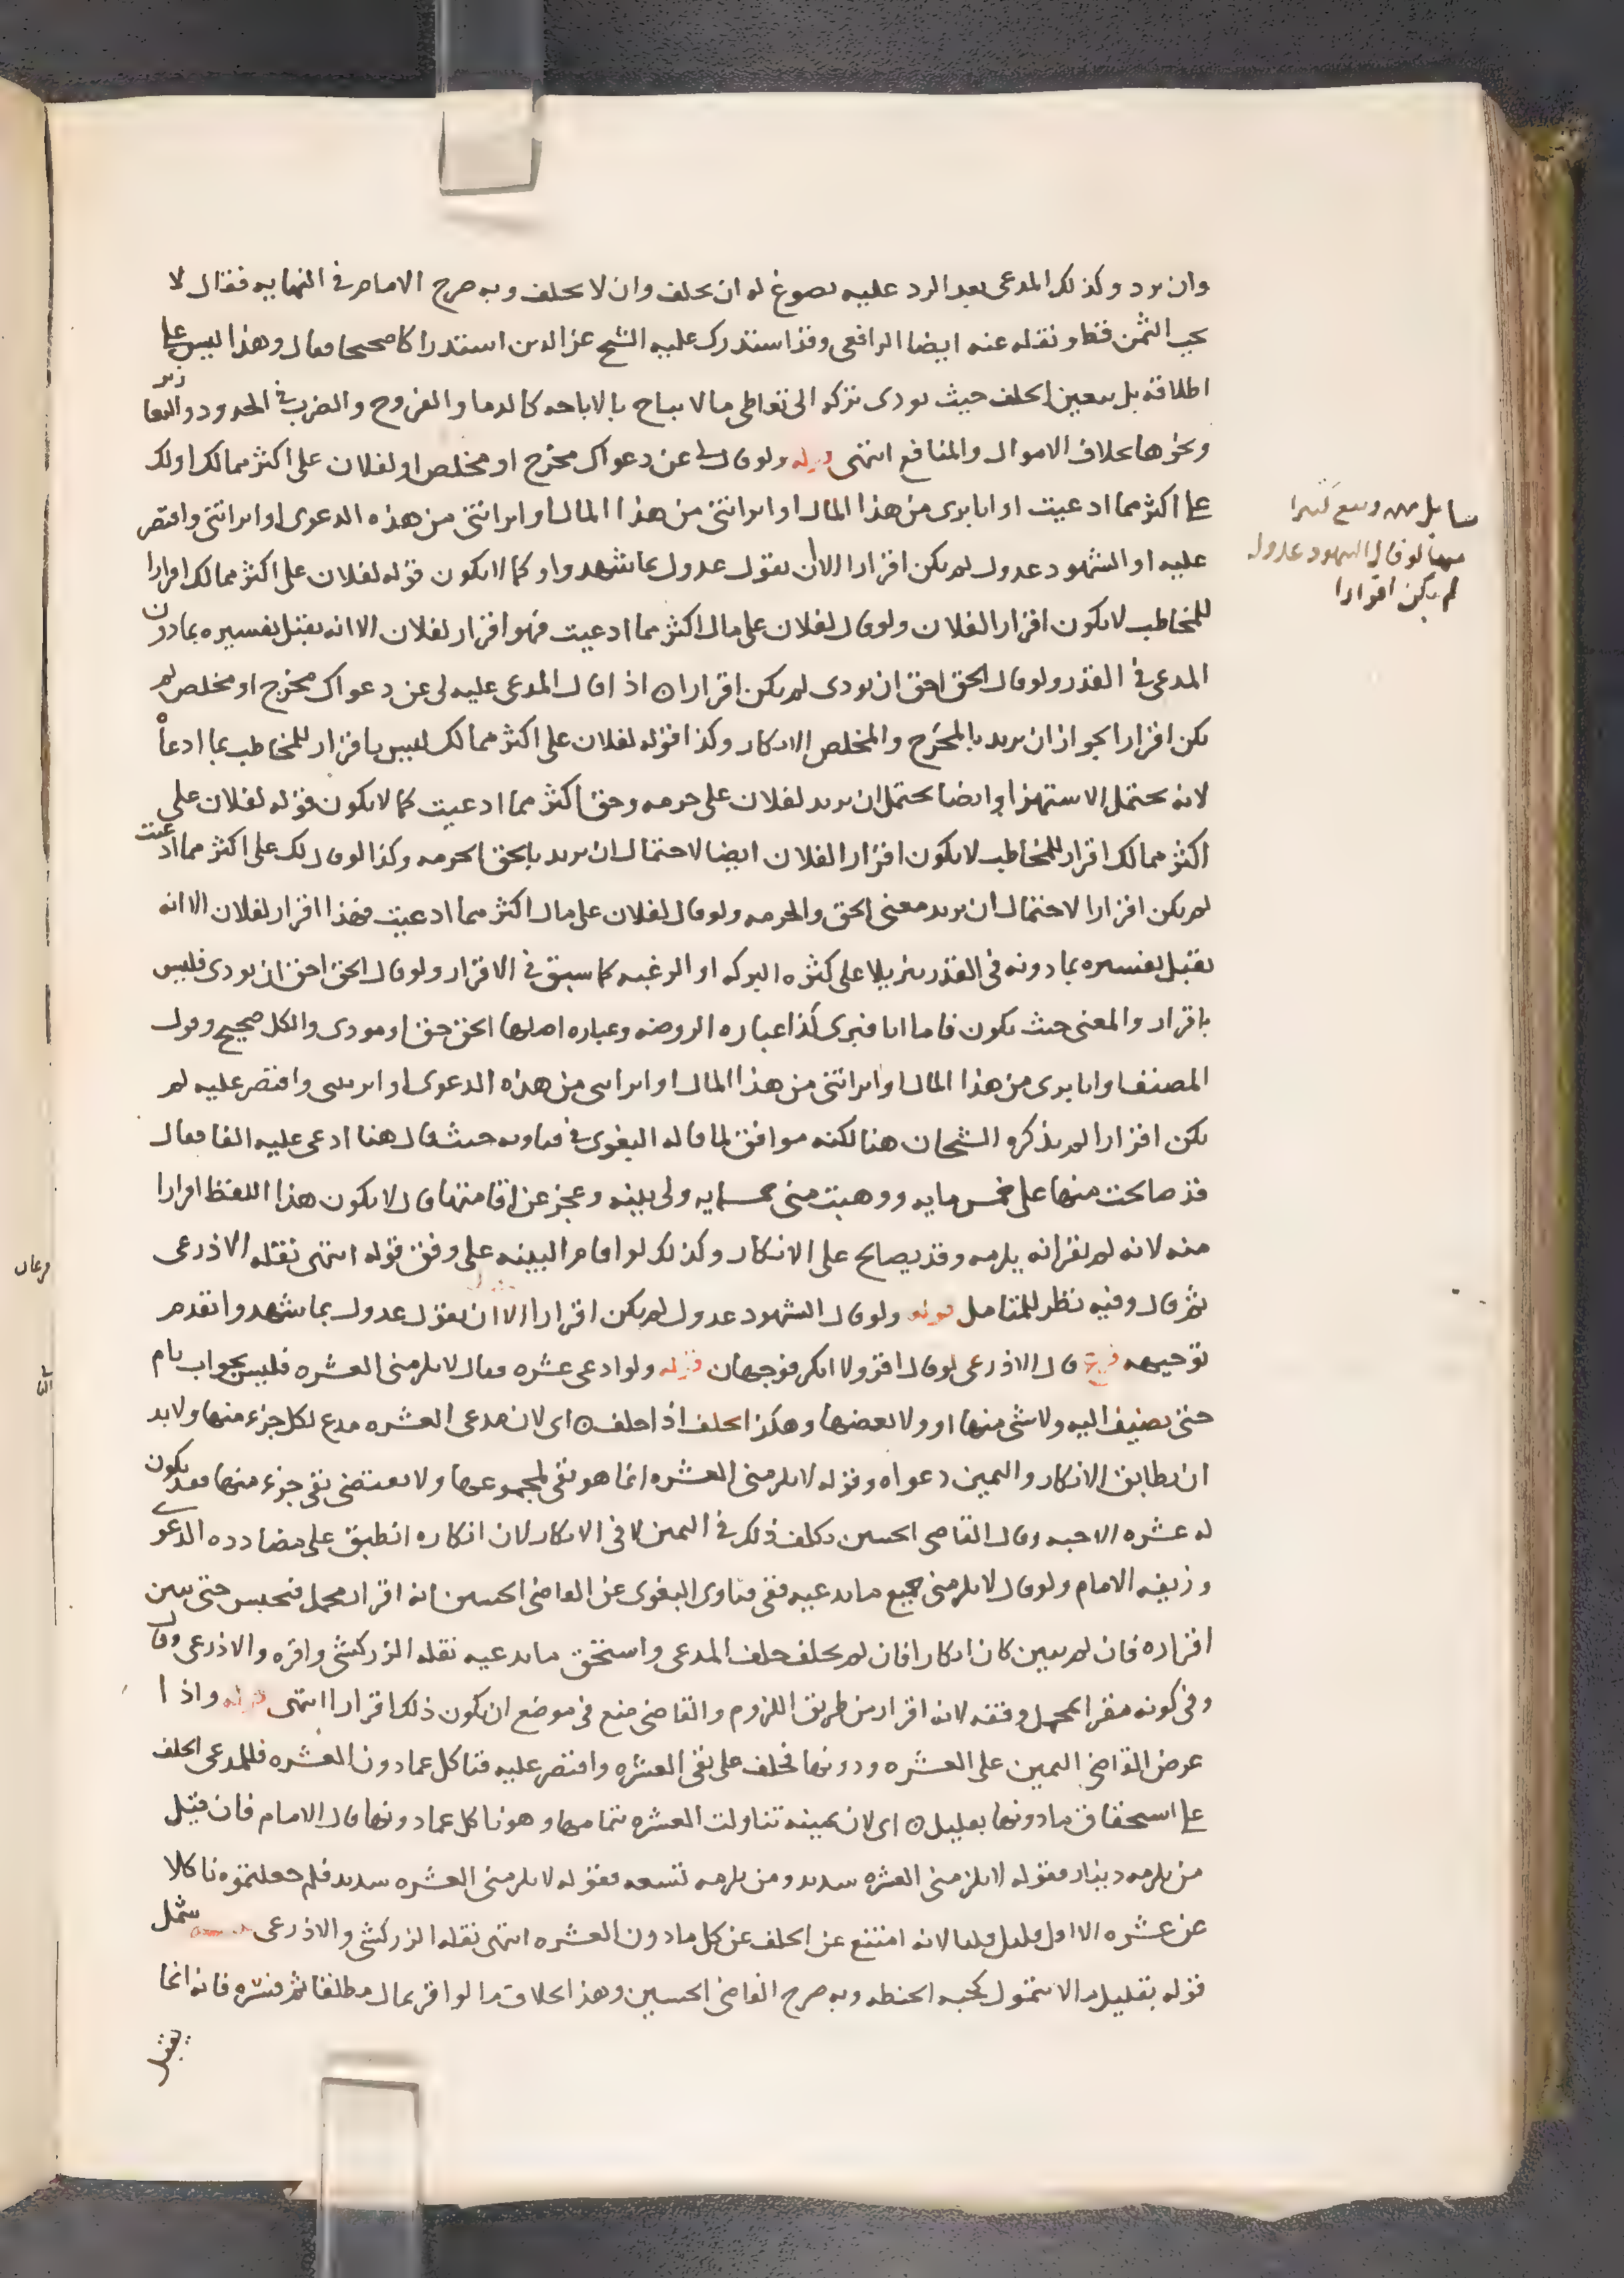 وان يرد وكذلك المدعى بعد الرد عليه يصوغ له ان يحلف وان لا يحلف وبه صرح الامام في النهايه فقال لا
يجب اليمين قط ونقله عنه ايضا الرافعي وقد استدرك عليه الشيخ عز الدين استدراكا صحيحا فقال وهذا ليس على
اطلاقه بل يتعين الحلف حيث يودى تركه الى تعاطى ما لا يباح بالاباحه كالدما والفروج والضرب في الحدود والتعازير
ونحوها بخلاف الاموال والمنافع انتهى قوله ولو قال لي عن دعواك مخرج او مخلص او لفلان على اكثر مما لك او لك
على اكثر مما ادعيت او انا برى من هذا المال او ابراتنى من هذا المال او ابراتنى من هذه الدعوى او ابراتنى واقتصر
عليه او الشهود عدول لم يكن اقرارا الا ان يقول عدول بما شهدوا وكما لا يكون قوله لفلان على اكثر مما لك اقرارا
للمخاطب لا يكون اقرارا لفلان ولو قال لفلان على مال اكثر مما ادعيت فهو اقرار لفلان الا انه يقبل تفسيره بما دون
المدعى في القدر ولو قال الحق احق ان يودى لم يكن اقرارا ن اذا قال المدعى عليه لى عن دعواك مخرج او مخلص لم
يكن اقرارا لجواز ان يريد بالمخرج والمخلص الانكار وكذا قوله لفلان على اكثر مما لك ليس باقرار للمخاطب بما ادعاه
لانه يحتمل الاستهزا وايضا يحتمل ان يريد لفلان على حرمه وحق اكثر مما ادعيت كما لا يكون قوله لفلان على
اكثر مما لك اقرار للمخاطب لا يكون اقرارا لفلان ايضا لاحتمال ان يريد بالحق الحرمه وكذا لو قال لك على اكثر مما ادعيت
لم يكن اقرارا لاحتمال ان يريد معنى الحق والحرمه ولو قال لفلان على مال اكثر مما ادعيت فهذا اقرار لفلان الا انه
يقبل تفسيره بما دونه في القدر تنزيلا على كثره البركه او الرغبه كما سبق في الاقرار ولو قال الحق احق ان يودى فليس
باقرار والمعنى حيث يكون فاما انا فبرى كذا عباره الروضه وعباره اصلها الحق حق او مودى والكل صحيح وقول
المصنف او انا برى من هذا المال او ابراتنى من هذا المال او ابراتنى من هذه الدعوى او ابراتنى واقتصر عليه لم
يكن اقرارا لم يذكره الشيخان هنا لكنه موافق لما قاله البغوى في فتاويه حيث قال هنا ادعى عليه الفا فقال
قد صالحت منها على خمس مايه ووهبت منى خمسمايه ولى بينه وعجز عن اقامتها قال لا يكون هذا اللفظ اقرارا
منه لانه لم يقر انه يلزمه وقد يصالح على الانكار وكذلك لو اقام البينه على وفق قوله انتهى نقله الاذرعى
ثم قال وفيه نظر للمتامل قوله ولو قال الشهود عدول لم يكن اقرارا الا ان يقول عدول بما شهدوا تقدم
توجيهه فرع قال الاذرعى لو قال اقر ولا انكر فوجهان قوله ولو ادعى عشره فقال لا يلزمنى العشره فليس بجواب تام
حتى يضيف اليه ولا شى منها او ولا بعضها وهكذا يحلف اذا حلف ن اى لان مدعى العشره مدع لكل جزء منها ولا بد
ان يطابق الانكار واليمين دعواه وقوله لا يلزمنى العشره انما هو نفى لمجموعها ولا يقتضى نفى جزء منها فقد يكون
له عشره الا حبه وقال القاضى الحسين يكلف ذلك في اليمين لا في الانكار لان انكاره انطبق على مضادده الدعوى
وزيفه الامام ولو قال لا يلزمنى جميع ما يدعيه ففى فتاوى البغوى عن القاضى الحسين انه اقرار بمجمل فيحبس حتى يبين
اقراره فان لم يبين كان انكارا فان لم يحلف حلف المدعى واستحق ما يدعيه نقله الزركشى واقره والاذرعى وقال
وفى كونه مقرا بمجمل وقفه لانه اقرار من طريق اللزوم والقاضى منع في موضع ان يكون ذلك اقرارا انتهى قوله واذا
عرض القاضى اليمين على العشره ودونها فحلف على نفى العشره واقتصر عليه فناكل عما دون العشره فللمدعى الحلف
على استحقاق ما دونها بقليل ن اى لان يمينه تناولت العشره بتمامها وهو ناكل عما دونها قال الامام فان قيل
من يلزمه دينار فقوله لا يلزمنى العشره سديد ومن يلزمه تسعه فقوله لا يلزمنى العشره سديد فلم جعلتموه ناكلا
عن عشره الا اقل قليل قلنا لانه امتنع عن الحلف عن كل ما دون العشره انتهى نقله الزركشى والاذرعى شمل
قوله بقليل ما لا يتمول كحبه الحنطه وبه صرح القاضى الحسين وهذا بخلاف ما لو اقر بمال مطلقا ثم فسره فانه انما
يقبل
مسايل
منها لو قال الشهود عدول
لم يكن اقرارا
فرعان